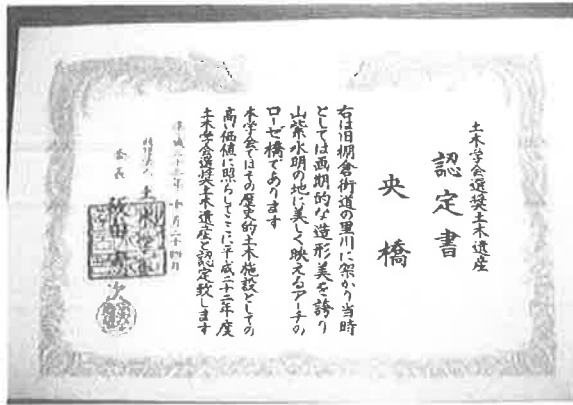 土木学会選奨土木遺産
認定書
央橋
右は旧棚倉街道の里川に架かり当時
としては画期的な造形美を誇り
山紫水明の地に美しく映えるアーチの
ローゼ橋であります
本学会ではその歴史的土木施設としての
高い価値に照らしてここに平成二十二年度
土木学会選奨土木遺産と認定致します
会長